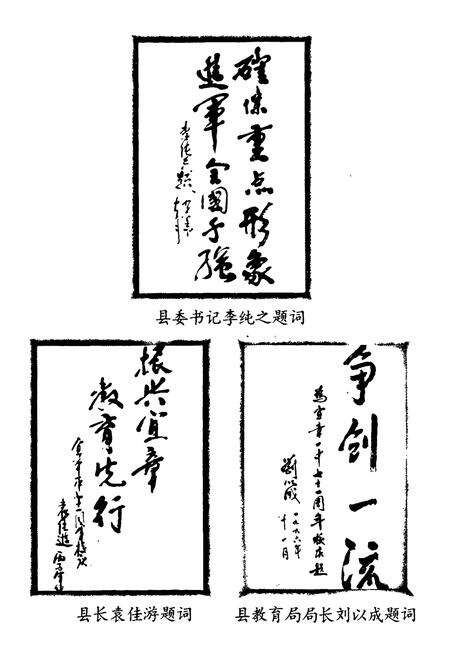 確保重点形象
進軍全國千强
县委书记李纯之题词
振兴宜章
教育先行
袁佳遊
县长袁佳游题词
争创一流
為宜章一中七十一周年校庆题
劉以成
一九九六年
十一月
县教育局局长刘以成题词